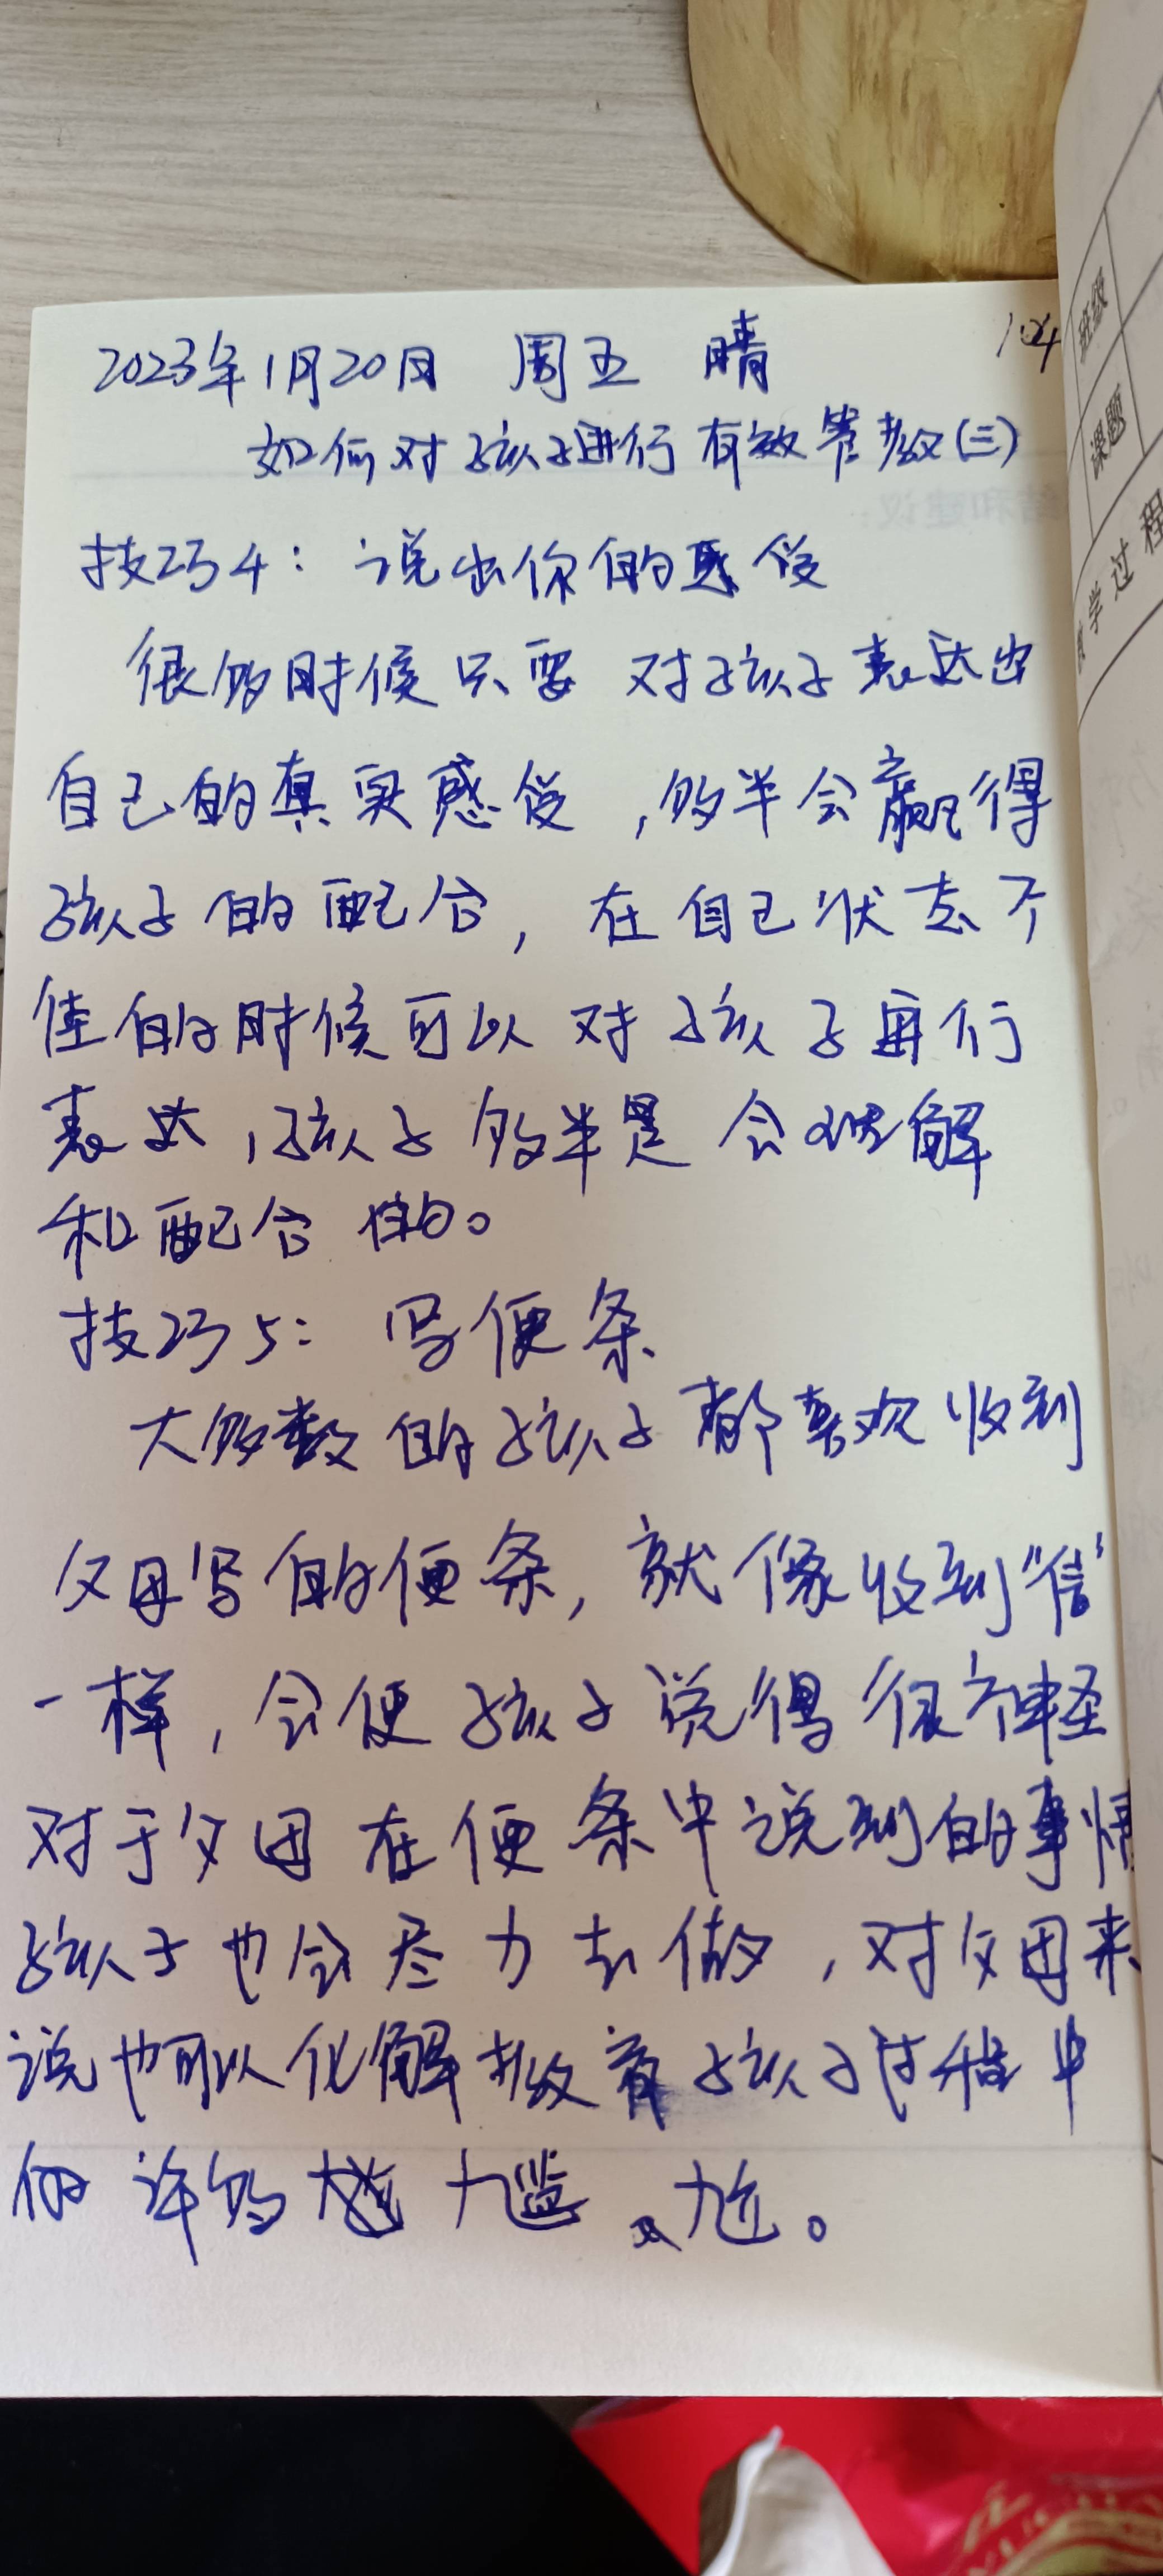 2023年1月20日 周五 晴
104
如何对孩子进行有效管教(三)
技巧4：说出你的感受
很多时候只要对孩子表达出
自己的真实感受，多半会赢得
孩子的配合，在自己状态不
佳的时候可以对孩子再行
表达，孩子多半是会理解
和配合的。
技巧5：写便条
大多数的孩子都喜欢收到
父母写的便条，就像收到“信”
一样，会使孩子觉得很神圣
对于父母在便条中说到的事情
孩子也会尽力去做，对父母来
说也可以化解教育孩子过程中
的许多尴尬。
班级
课题
学过程
结和建议